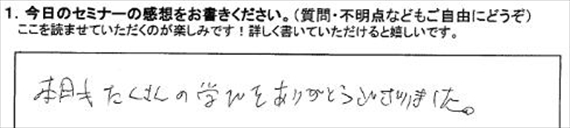 1. 今日のセミナーの感想をお書きください。(質問・不明点などもご自由にどうぞ)
ここを読ませていただくのが楽しみです！詳しく書いていただけると嬉しいです。
本日もたくさんの学びをありがとうございました。